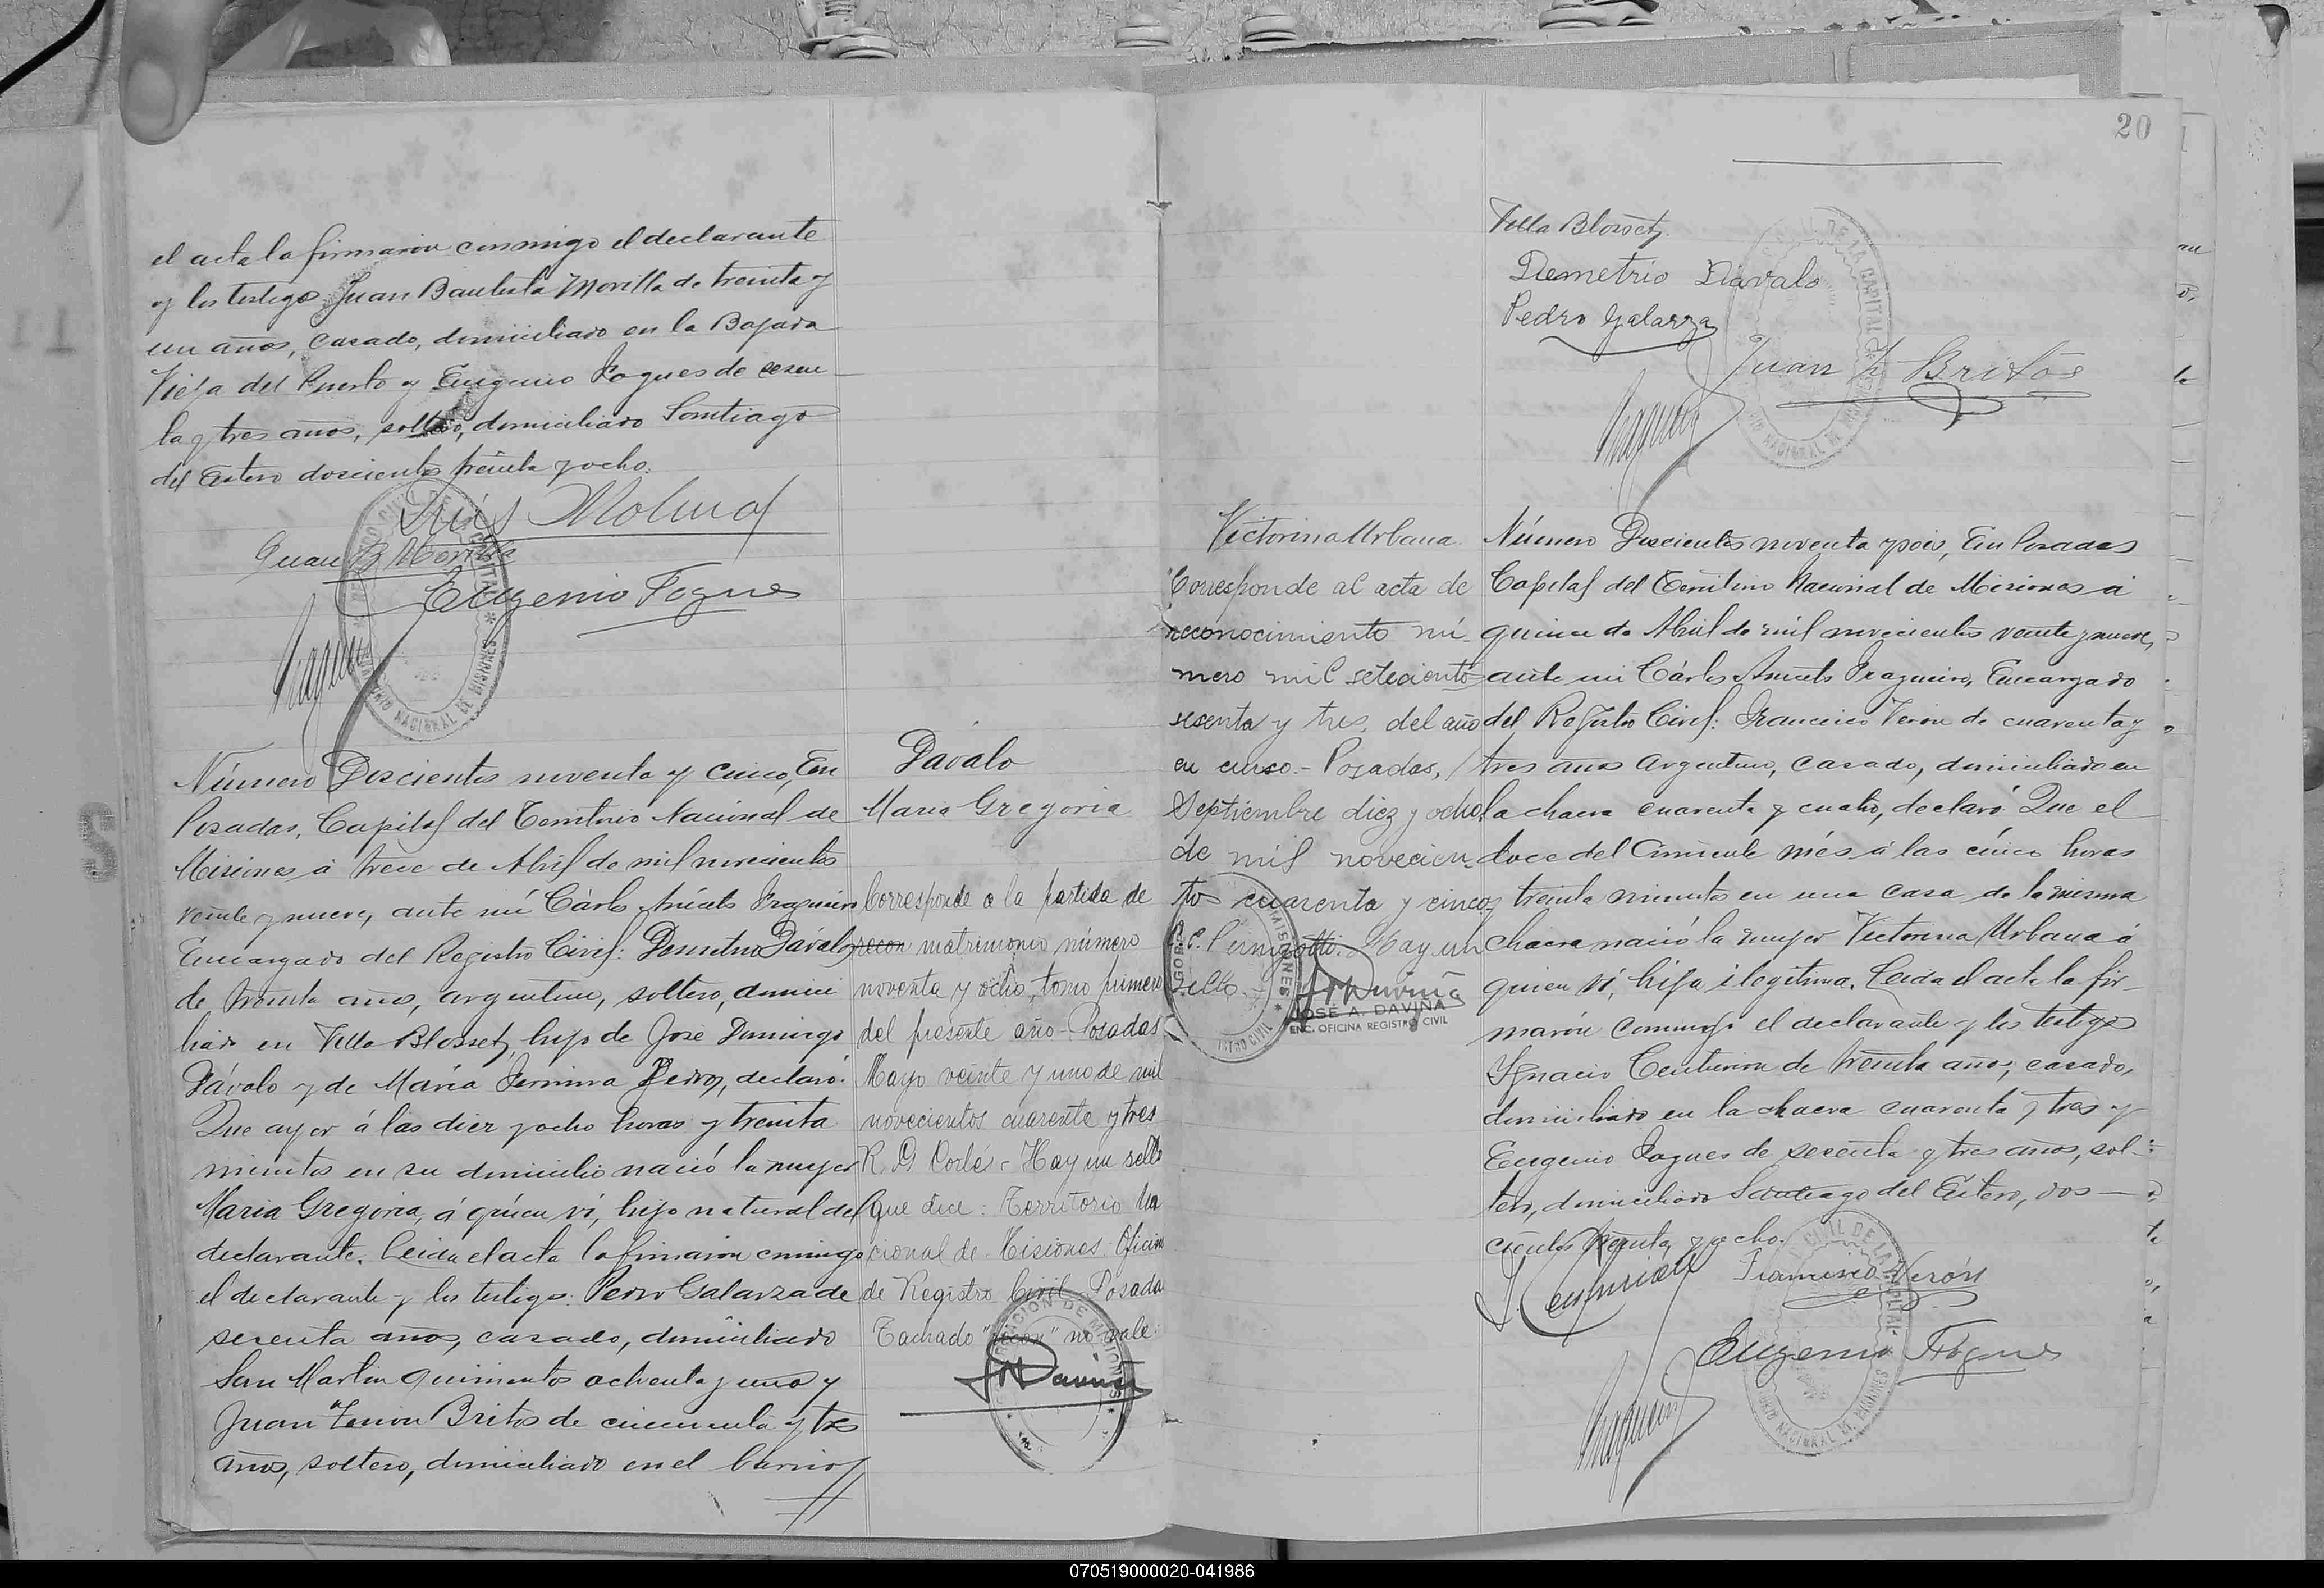 el acta la firmaron conmigo el declarante
y los testigos Juan Bautista Morilla de treinta y
un años, casado, domiciliado en la Bajada
Vieja del Puerto y Eugenio Fogues de sesen
ta y tres años, soltero, domiciliado Santiago
del Estero doscientos treinta y ocho.
Luis Molina
Juan B Morilla
Eugenio Fogues
Número Doscientos noventa y cinco, En
Posadas, Capital del Territorio Nacional de
Misiones á trece de Abril de mil novecientos
veinte y nueve, ante mi Cárlos Fragueiro
Encargado del Registro Civil: Demetrio Dávalo
de treinta años, argentino, soltero, domici
liado en Villa Blosset, hijo de José Domingo
Dávalo y de María, declaró:
Que ayer á las diez y ocho horas y treinta
minutos en su domicilio nació la mujer
Maria Gregoria, á quien ví, hija natural del
declarante. Leida el acta la firmaron conmigo
el declarante y los testigos: Pedro Galarza de
sesenta años, casado, domiciliado
San Martin quinientos ochenta y uno y
Juan Zenon Britos de cincuenta y tres
años, soltero, domiciliado en el barrio
Dávalo
Maria Gregoria
Corresponde a la partida de
recon matrimonio número
noventa y ocho, tomo primero
del presente año - Posadas
Mayo veinte y uno de mil
novecientos cuarenta y tres
R. D. Cortés - Hay un sello
que dice: Territorio Na
cional de Misiones Oficina
de Registro Civil Posadas
Tachado "recon" no vale.
20
Villa Blosset.
Demetrio Davalo
Pedro Galarza
Juan Z Britos
Victorina Urbana
"Corresponde al acta de
reconocimiento nú-
mero mil setecientos
sesenta y tres, del año
en curso.- Posadas,
Septiembre diez y ocho
de mil novecien-
tos cuarenta y cinco
Hay un
sello.
JOSÉ A. DAVIÑA
ENC. OFICINA REGISTRO CIVIL
Número Doscientos noventa y seis, En Posadas
Capital del Territorio Nacional de Misiones á
quince de Abril de mil novecientos veinte y nueve,
ante mi Cárlos Fragueiro, Encargado
del Registro Civil: Francisco Veron de cuarenta y
tres años argentino, casado, domiciliado en
la chacra cuarenta y cuatro, declaró: Que el
doce del corriente més á las cinco horas
y treinta minutos en una casa de la misma
chacra nació la mujer Victorina Urbana á
quien ví, hija ilegítima. Leida el acta la fir-
maron conmigo el declarante y los testigos
Ignacio Centurion de treinta años, casado,
domiciliado en la chacra cuarenta y tres y
Eugenio Fogues de sesenta y tres años, sol-
tero, domiciliado Santiago del Estero, dos-
cientos treinta y ocho.
I. Centurion
Francisco Verón
Eugenio Fogues
070519000020-041986